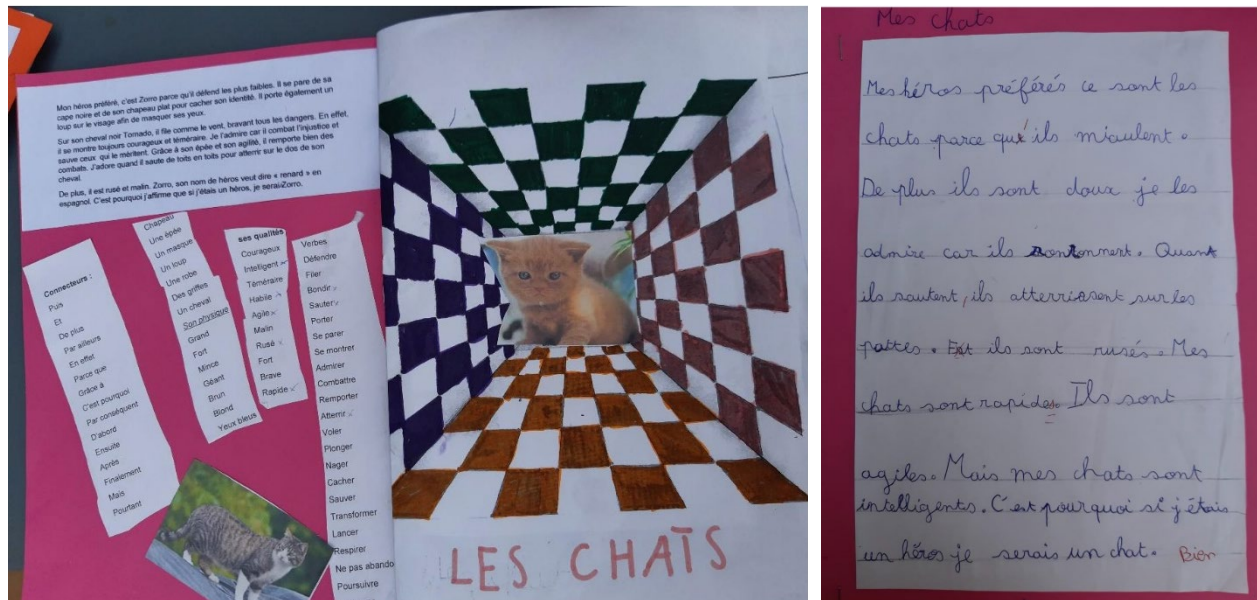 Mon héros préféré, c'est Zorro parce qu'il défend les plus faibles. Il se pare de sa
cape noire et de son chapeau plat pour cacher son identité. Il porte également un
loup sur le visage afin de masquer ses yeux.
Sur son cheval noir Tornado, il file comme le vent, bravant tous les dangers. En effet,
il se montre toujours courageux et téméraire. Je l'admire car il combat l'injustice et
sauve ceux qui le méritent. Grâce à son épée et son agilité, il remporte bien des
combats. J'adore quand il saute de toits en toits pour atterrir sur le dos de son
cheval.
De plus, il est rusé et malin. Zorro, son nom de héros veut dire « renard » en
espagnol. C'est pourquoi j'affirme que si j'étais un héros, je serais Zorro.
Connecteurs :
Puis
Et
De plus
Par ailleurs
En effet
Parce que
Grâce à
C'est pourquoi
Par conséquent
D'abord
Ensuite
Après
Finalement
Mais
Pourtant
Chapeau
Une épée
Un masque
Un loup
Une robe
Des griffes
Un cheval
Son physique
Grand
Fort
Mince
Géant
Brun
Blond
Yeux bleus
ses qualités
Courageux
Intelligent
Téméraire
Habile
Agile
Malin
Rusé
Fort
Brave
Rapide
Verbes
Défendre
Filer
Bondir
Sauter
Porter
Se parer
Se montrer
Admirer
Combattre
Remporter
Atterrir
Voler
Plonger
Nager
Cacher
Sauver
Transformer
Lancer
Respirer
Ne pas abando
Poursuivre
LES CHATS
Mes chats
Mes héros préférés ce sont les
chats parce qu'ils miaulent.
De plus ils sont doux je les
admire car ils ronronnent. Quant
ils sautent, ils atterrissent sur les
pattes. Et ils sont rusés. Mes
chats sont rapides. Ils sont
agiles. Mais mes chats sont
intelligents. C'est pourquoi si j'étais
un héros je serais un chat. Bien